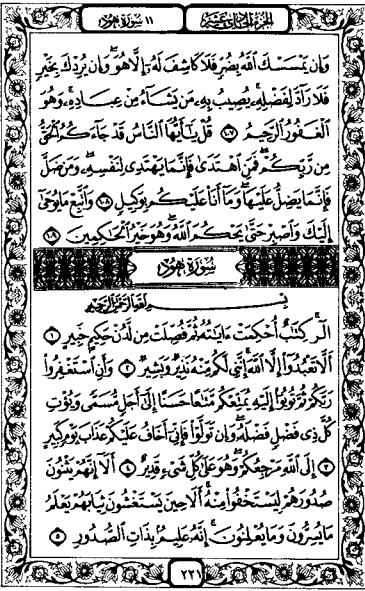 الجزء الحادي عشر ١١ سورة هود
وَإِن يَمْسَسْكَ ٱللَّهُ بِضُرٍّ فَلَا كَاشِفَ لَهُۥٓ إِلَّا هُوَ ۖ وَإِن يُرِدْكَ بِخَيْرٍ
فَلَا رَآدَّ لِفَضْلِهِۦ ۚ يُصِيبُ بِهِۦ مَن يَشَآءُ مِنْ عِبَادِهِۦ ۚ وَهُوَ
ٱلْغَفُورُ ٱلرَّحِيمُ ١٠٧ قُلْ يَٰٓأَيُّهَا ٱلنَّاسُ قَدْ جَآءَكُمُ ٱلْحَقُّ
مِن رَّبِّكُمْ ۖ فَمَنِ ٱهْتَدَىٰ فَإِنَّمَا يَهْتَدِى لِنَفْسِهِۦ ۖ وَمَن ضَلَّ
فَإِنَّمَا يَضِلُّ عَلَيْهَا ۖ وَمَآ أَنَا۠ عَلَيْكُم بِوَكِيلٍ ١٠٨ وَٱتَّبِعْ مَا يُوحَىٰٓ
إِلَيْكَ وَٱصْبِرْ حَتَّىٰ يَحْكُمَ ٱللَّهُ ۚ وَهُوَ خَيْرُ ٱلْحَٰكِمِينَ ١٠٩
سورة هود
بِسْمِ ٱللَّهِ ٱلرَّحْمَٰنِ ٱلرَّحِيمِ
الٓر ۚ كِتَٰبٌ أُحْكِمَتْ ءَايَٰتُهُۥ ثُمَّ فُصِّلَتْ مِن لَّدُنْ حَكِيمٍ خَبِيرٍ ١
أَلَّا تَعْبُدُوٓا۟ إِلَّا ٱللَّهَ ۚ إِنَّنِى لَكُم مِّنْهُ نَذِيرٌ وَبَشِيرٌ ٢ وَأَنِ ٱسْتَغْفِرُوا۟
رَبَّكُمْ ثُمَّ تُوبُوٓا۟ إِلَيْهِ يُمَتِّعْكُم مَّتَٰعًا حَسَنًا إِلَىٰٓ أَجَلٍ مُّسَمًّى وَيُؤْتِ
كُلَّ ذِى فَضْلٍ فَضْلَهُۥ ۖ وَإِن تَوَلَّوْا۟ فَإِنِّىٓ أَخَافُ عَلَيْكُمْ عَذَابَ يَوْمٍ كَبِيرٍ
٣ إِلَى ٱللَّهِ مَرْجِعُكُمْ ۖ وَهُوَ عَلَىٰ كُلِّ شَىْءٍ قَدِيرٌ ٤ أَلَآ إِنَّهُمْ يَثْنُونَ
صُدُورَهُمْ لِيَسْتَخْفُوا۟ مِنْهُ ۚ أَلَا حِينَ يَسْتَغْشُونَ ثِيَابَهُمْ يَعْلَمُ
مَا يُسِرُّونَ وَمَا يُعْلِنُونَ ۚ إِنَّهُۥ عَلِيمٌۢ بِذَاتِ ٱلصُّدُورِ ٥
٢٢١